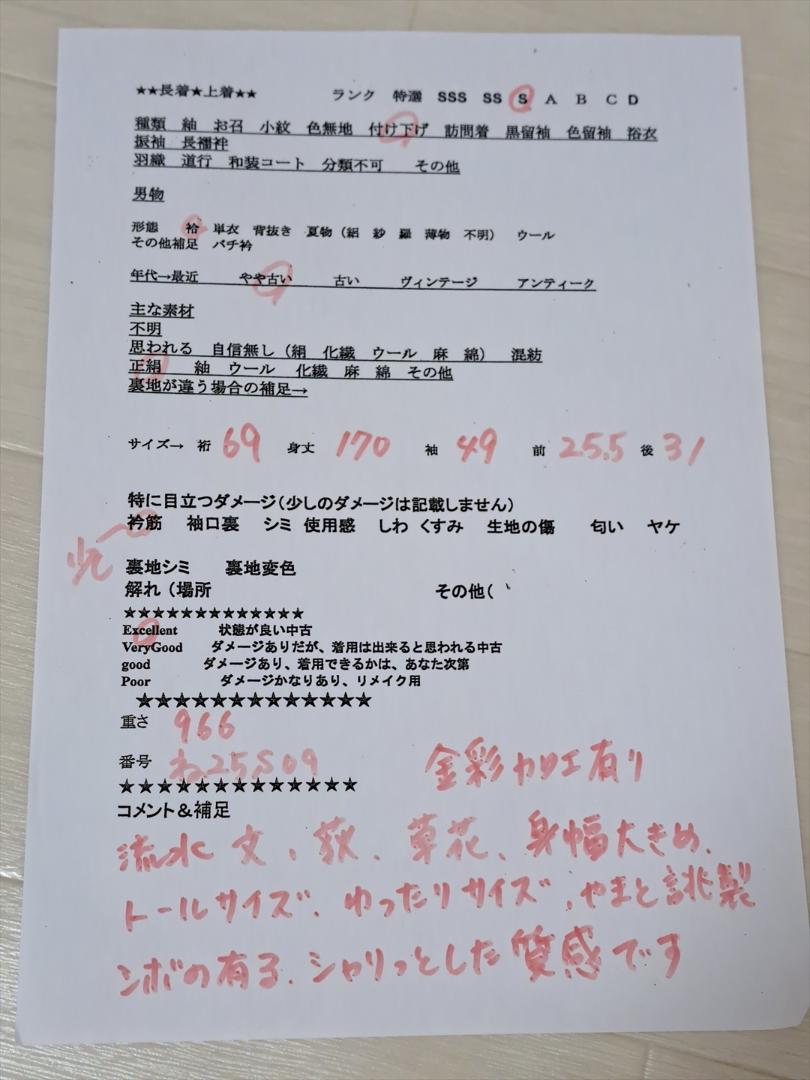 ★★長着★上着★★ ランク 特選 SSS SS S A B C D
種類 紬 お召 小紋 色無地 付け下げ 訪問着 黒留袖 色留袖 浴衣
振袖 長襦袢
羽織 道行 和装コート 分類不可 その他
男物
形態 袷 単衣 背抜き 夏物(絽 紗 羅 薄物 不明) ウール
その他補足 バチ衿
年代→最近 やや古い 古い ヴィンテージ アンティーク
主な素材
不明
思われる 自信無し(絹 化繊 ウール 麻 綿) 混紡
正絹 紬 ウール 化繊 麻 綿 その他
裏地が違う場合の補足→
サイズ→ 裄 69 身丈 170 袖 49 前 25.5 後 31
特に目立つダメージ(少しのダメージは記載しません)
衿筋 袖口裏 シミ 使用感 しわ くすみ 生地の傷 匂い ヤケ
少し
裏地シミ 裏地変色
解れ(場所 その他(
★★★★★★★★★★★★★
Excellent 状態が良い中古
VeryGood ダメージありだが、着用は出来ると思われる中古
good ダメージあり、着用できるかは、あなた次第
Poor ダメージかなりあり、リメイク用
★★★★★★★★★★★★★
重さ 966
番号 ね25S09 金彩カコエ有り
★★★★★★★★★★★★★
コメント&補足
流水文、荻、草花、身幅大きめ、
トールサイズ、ゆったりサイズ、やまと誂製
ンボの有る、シャリっとした質感です